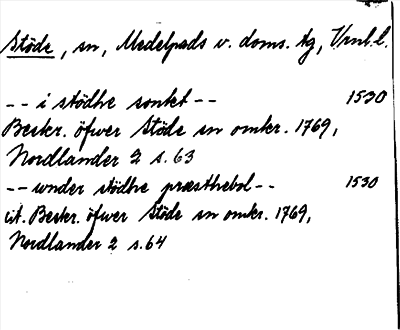 Stöde, sn, Medelpads v. doms. tg, Vrnl. l.
-- i stödhe sonket -- 1530
Beskr. öfwer Stöde sn omkr. 1769,
Nordlander 2 s. 63
-- wnder stödhe præsthebol -- 1530
cit. Beskr. öfwer Stöde sn omkr. 1769,
Nordlander 2 s. 64